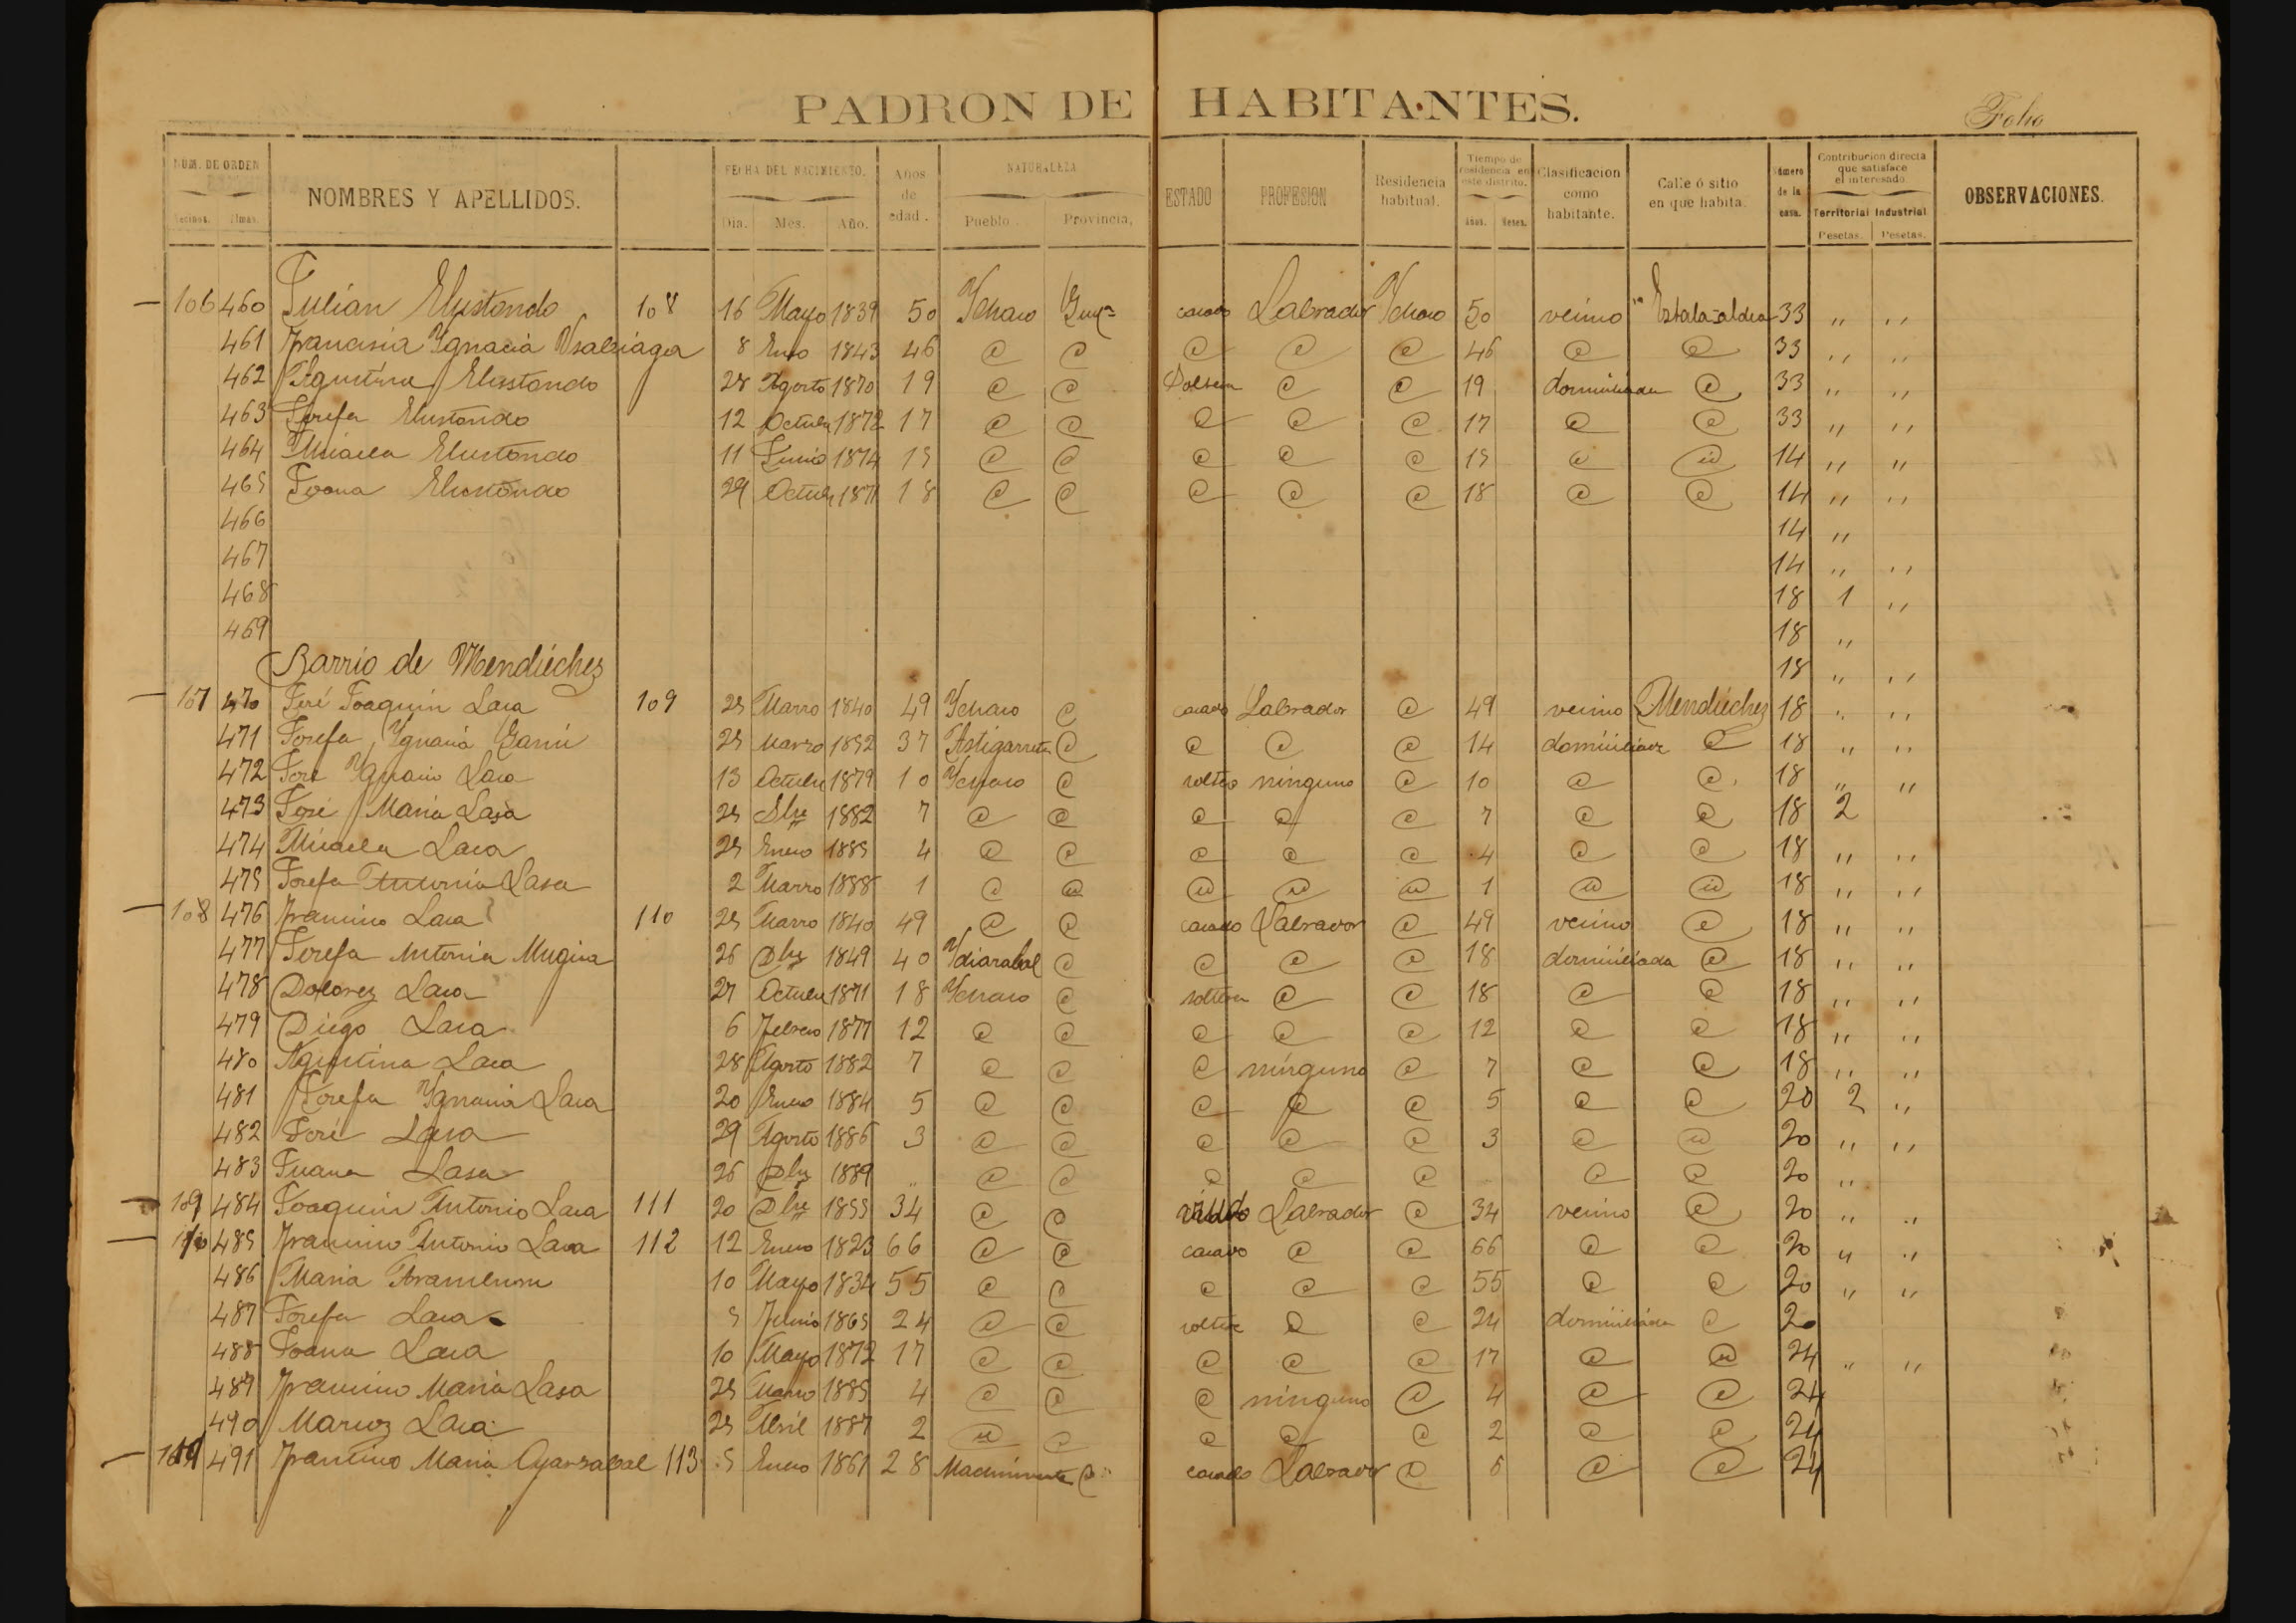 PADRON DE HABITANTES.
Folio
NUM. DE ORDEN
Vecinos. Almas.
NOMBRES Y APELLIDOS.
FECHA DEL NACIMIENTO.
Dia. Mes. Año.
Años de edad.
NATURALEZA
Pueblo. Provincia.
ESTADO
PROFESION
Residencia habitual.
Tiempo de residencia en este distrito.
Años. Meses.
Clasificacion como habitante.
Calle ó sitio en que habita.
Número de la casa.
Contribucion directa que satisface el interesado
Territorial Industrial
Pesetas. Pesetas.
OBSERVACIONES.
106 460 Julián Elustondo 108 16 Mayo 1839 50 Ychaso casado Labrador Ychaso 50 vecino 33 " "
461 Francisca Ygnacia 8 Enero 1843 46 @ @ @ @ @ 46 @ @ 33 " "
462 Agustina Elustondo 28 Agosto 1870 19 @ @ Soltera @ @ 19 domiciliada @ 33 " "
463 Josefa Elustondo 12 Octubre 1872 17 @ @ @ @ @ 17 @ @ 33 " "
464 Micaela Elustondo 11 Junio 1874 15 @ @ @ @ @ 15 @ @ 14 " "
465 Joana Elustondo 29 Octubre 1871 18 @ @ @ @ @ 18 @ @ 14 " "
466 14 "
467 14 " "
468 18 1 "
469 18 "
Barrio de Mendiéchez 18 " "
107 470 José Joaquin Lasa 109 25 Marzo 1840 49 Ychaso @ casado Labrador @ 49 vecino Mendiéchez 18 " "
471 Josefa Ygnacia 25 Marzo 1852 37 Astigarreta @ @ @ @ 14 domiciliada @ 18 " "
472 José Ygnacio Lasa 13 Octubre 1879 10 Ychaso @ soltero ninguno @ 10 @ @ 18 " "
473 José Maria Lasa 25 1882 7 @ @ @ @ @ 7 @ @ 18 2
474 Micaela Lasa 25 Enero 1885 4 @ @ @ @ @ 4 @ @ 18 " "
475 Josefa Antonia Lasa 2 Marzo 1888 1 @ @ @ @ @ 1 @ @ 18 " "
108 476 Francisco Lasa 110 25 Marzo 1840 49 @ @ casado Labrador @ 49 vecino @ 18 " "
477 Josefa Antonia Mugica 26 Dbre 1849 40 Ydiazabal @ @ @ @ 18 domiciliada @ 18 " "
478 Dolorez Lasa 27 Octubre 1871 18 Ychaso @ soltera @ @ 18 @ @ 18 " "
479 Diego Lasa 6 Febrero 1877 12 @ @ @ @ @ 12 @ @ 18 " "
480 Agustina Lasa 28 Agosto 1882 7 @ @ @ ninguno @ 7 @ @ 18 " "
481 Josefa Ygnacia Lasa 20 Enero 1884 5 @ @ @ @ @ 5 @ @ 20 2 "
482 José Lasa 29 Agosto 1886 3 @ @ @ @ @ 3 @ @ 20 " "
483 Juana Lasa 26 Dbre 1889 " @ @ @ @ @ @ @ 20 "
109 484 Joaquin Antonio Lasa 111 20 Dbre 1855 34 @ @ viudo Labrador @ 34 vecino @ 20 " "
110 485 Francisco Antonio Lasa 112 12 Enero 1823 66 @ @ casado @ @ 66 @ @ 20 " "
486 Maria Aramburu 10 Mayo 1834 55 @ @ @ @ @ 55 @ @ 20 " "
487 Josefa Lasa 5 1865 24 @ @ soltera @ @ 24 domiciliada @ 20
488 Joana Lasa 10 Mayo 1872 17 @ @ @ @ @ 17 @ @ 24 " "
489 Francisco Maria Lasa 25 Marzo 1885 4 @ @ @ ninguno @ 4 @ @ 24
490 Lasa 25 Abril 1887 2 @ @ @ @ @ 2 @ @ 24
491 Francisco Maria Oyarzabal 113 5 Enero 1861 28 @ casado Labrador @ @ @ 24